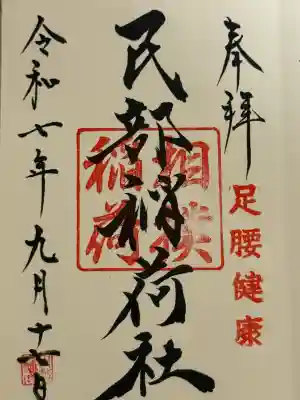 奉拝
足腰健康
民部稲荷社
相撲
稲荷
令和七年九月十七日